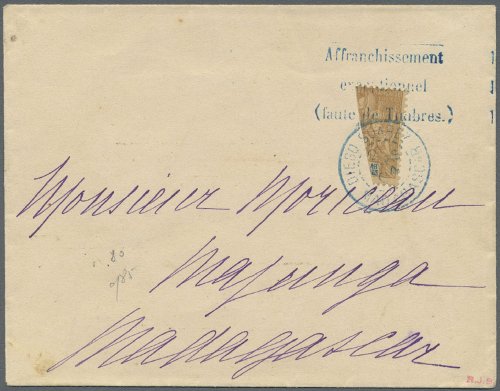 Affranchissement
exceptionnel
(faute de Timbres.)
DIEGO SUAREZ
Monsieur Morineau
Majunga
Madagascar
80
R.J.S